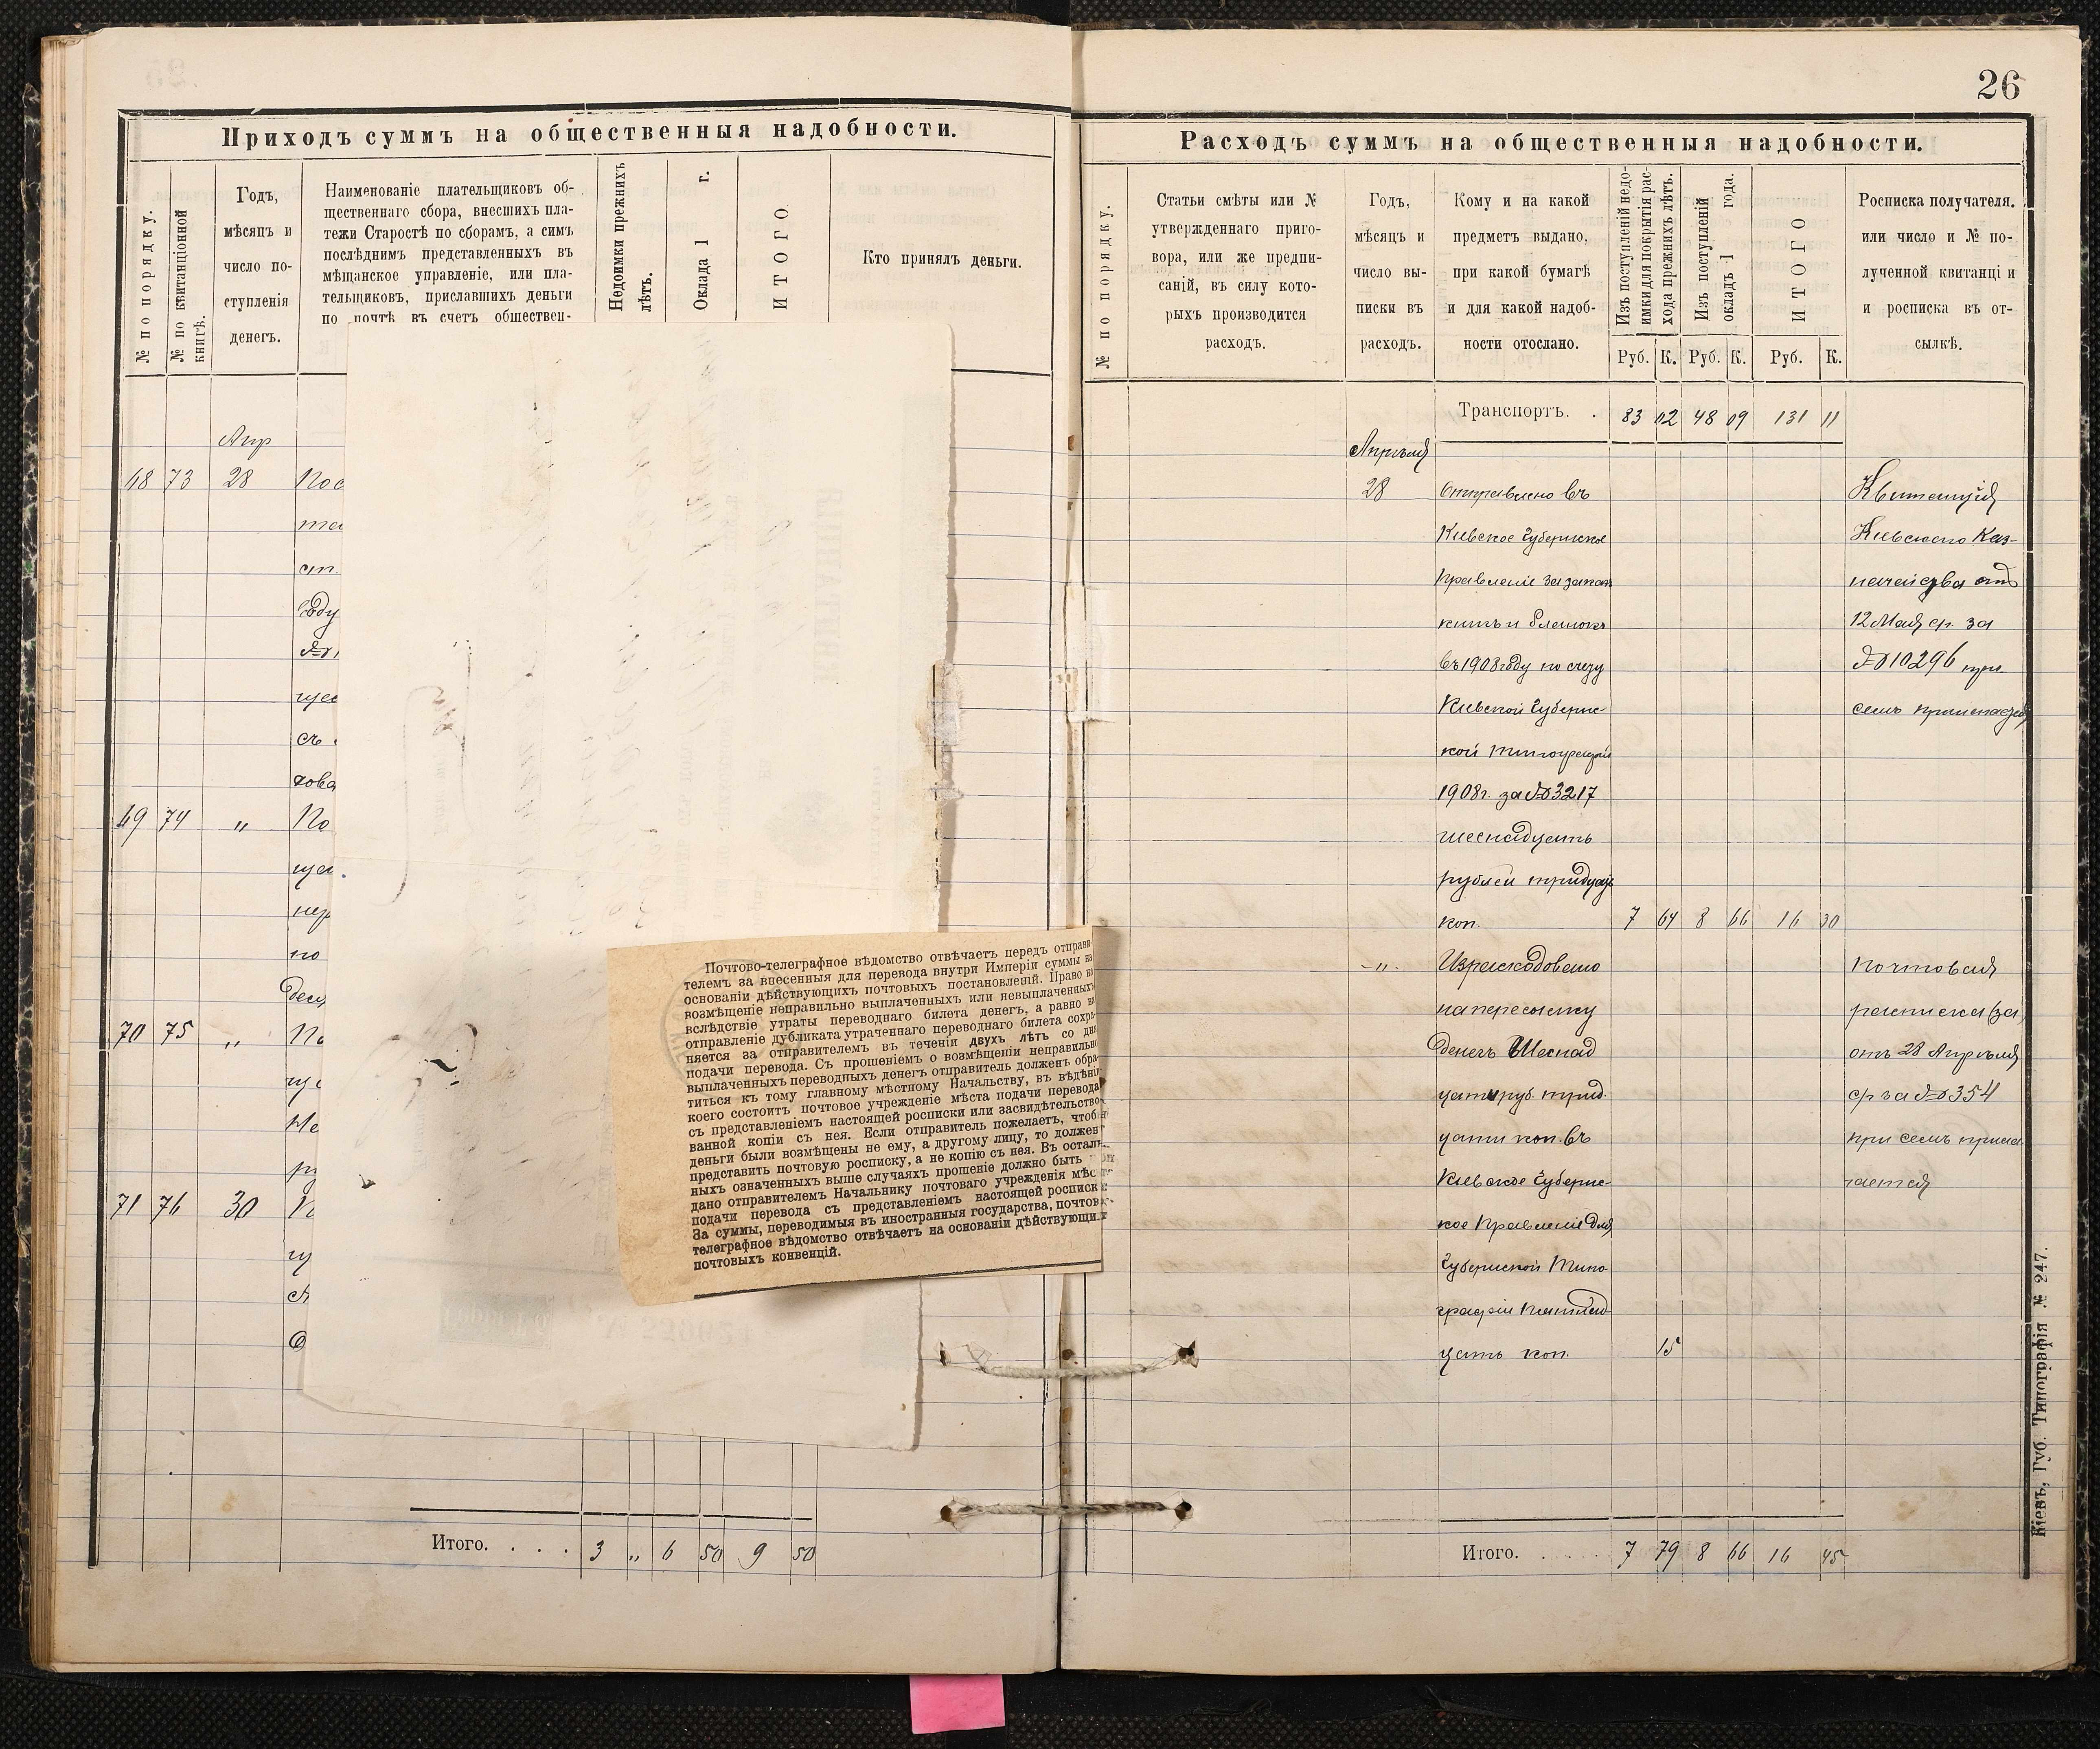 Приходъ суммъ на общественныя надобности.
№ по порядку.
№ по квитанціонной
книгѣ.
Годъ,
мѣсяцъ и
число по-
ступленія
денегъ.
Наименованіе плательщиковъ об-
щественнаго сбора, внесшихъ пла-
тежи Старостѣ по сборамъ, а симъ
послѣднимъ представленныхъ въ
мѣщанское управленіе, или пла-
тельщиковъ, приславшихъ деньги
по почтѣ въ счетъ обществен-
Недоимки прежнихъ
лѣтъ.
Оклада 1 г.
ИТОГО.
Кто принялъ деньги.
Апр
68 73 28 Пос
ст.
году
щес
съ
49 74 " По
по
70 75 " По
71 76 30
Почтово-телеграфное вѣдомство отвѣчаетъ передъ отправи-
телемъ за внесенныя для перевода внутри Имперіи суммы на
основаніи дѣйствующихъ почтовыхъ постановленій. Право на
возмѣщеніе неправильно выплаченныхъ или невыплаченныхъ
вслѣдствіе утраты переводнаго билета денегъ, а равно на
отправленіе дубликата утраченнаго переводнаго билета сохра-
няется за отправителемъ въ теченіи двухъ лѣтъ со дня
подачи перевода. Съ прошеніемъ о возмѣщеніи неправильно
выплаченныхъ переводныхъ денегъ отправитель долженъ обра-
титься къ тому главному мѣстному Начальству, въ вѣдѣніи
коего состоитъ почтовое учрежденіе мѣста подачи перевода
съ представленіемъ настоящей росписки или засвидѣтельство-
ванной копіи съ нея. Если отправитель пожелаетъ, чтобы
деньги были возмѣщены не ему, а другому лицу, то долженъ
представить почтовую росписку, а не копію съ нея. Въ осталь-
ныхъ означенныхъ выше случаяхъ прошеніе должно быть
дано отправителемъ Начальнику почтоваго учрежденія мѣс
подачи перевода съ представленіемъ настоящей росписк
За суммы, переводимыя въ иностранныя государства, почтов
телеграфное вѣдомство отвѣчаетъ на основаніи дѣйствующи
почтовыхъ конвенцій.
Итого. . . . 3 " 6 50 9 50
26
Расходъ суммъ на общественныя надобности.
№ по порядку.
Статьи смѣты или №
утвержденнаго приго-
вора, или же предпи-
саній, въ силу кото-
рыхъ производится
расходъ.
Годъ,
мѣсяцъ и
число вы-
писки въ
расходъ.
Кому и на какой
предметъ выдано,
при какой бумагѣ
и для какой надоб-
ности отослано.
Изъ поступленій недо-
имки для покрытія рас-
хода прежнихъ лѣтъ.
Изъ поступленій
окладъ 1 года.
ИТОГО
Руб. К. Руб. К. Руб. К.
Росписка получателя.
или число и № по-
лученной квитанці и
и росписка въ от-
сылкѣ.
Транспортъ. . 83 02 48 09 131 11
Апрѣля
28 Отправлено въ
Кіевское Губернское
Правленіе за
книгъ и бланокъ
въ 1908 году по счету
Кіевской Губернс-
кой Типографіи
1908 г. за № 3217
шеснадцать
рублей тридцать
коп. 7 64 8 66 16 30
Квитанція
Кіевского Каз-
начейства отъ
12 Мая ср. за
№ 10296 при
семъ
-"- Израсходовано
на пересылку
денегъ Шеснад
цать руб. трид.
цати коп. въ
Кіевское Губернс-
кое Правленіе для
Губернской Типо
графіи Пятнад
цать коп. 15
Почтовая
росписка (за)
отъ 28 Апрѣля
ср за № 354
при семъ прила
гается
Итого. . . . . 7 79 8 66 16 45
Кіевъ, Губ. Типографія № 247.